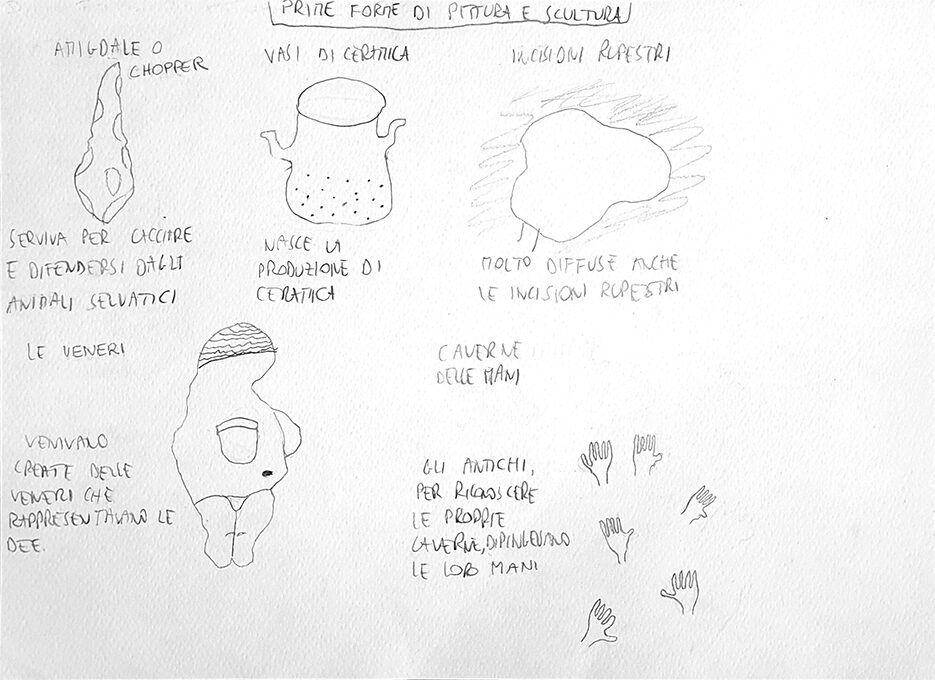 PRIME FORME DI PITTURA E SCULTURA
AMIGDALE O
CHOPPER
SERVIVA PER CACCIARE
E DIFENDERSI DAGLI
ANIMALI SELVATICI
VASI DI CERAMICA
NASCE LA
PRODUZIONE DI
CERAMICA
INCISIONI RUPESTRI
MOLTO DIFFUSE ANCHE
LE INCISIONI RUPESTRI
LE VENERI
VENIVANO
CREATE DELLE
VENERI CHE
RAPPRESENTAVANO LE
DEE.
CAVERNE
DELLE MANI
GLI ANTICHI,
PER RICONOSCERE
LE PROPRIE
CAVERNE, DIPINGEVANO
LE LORO MANI